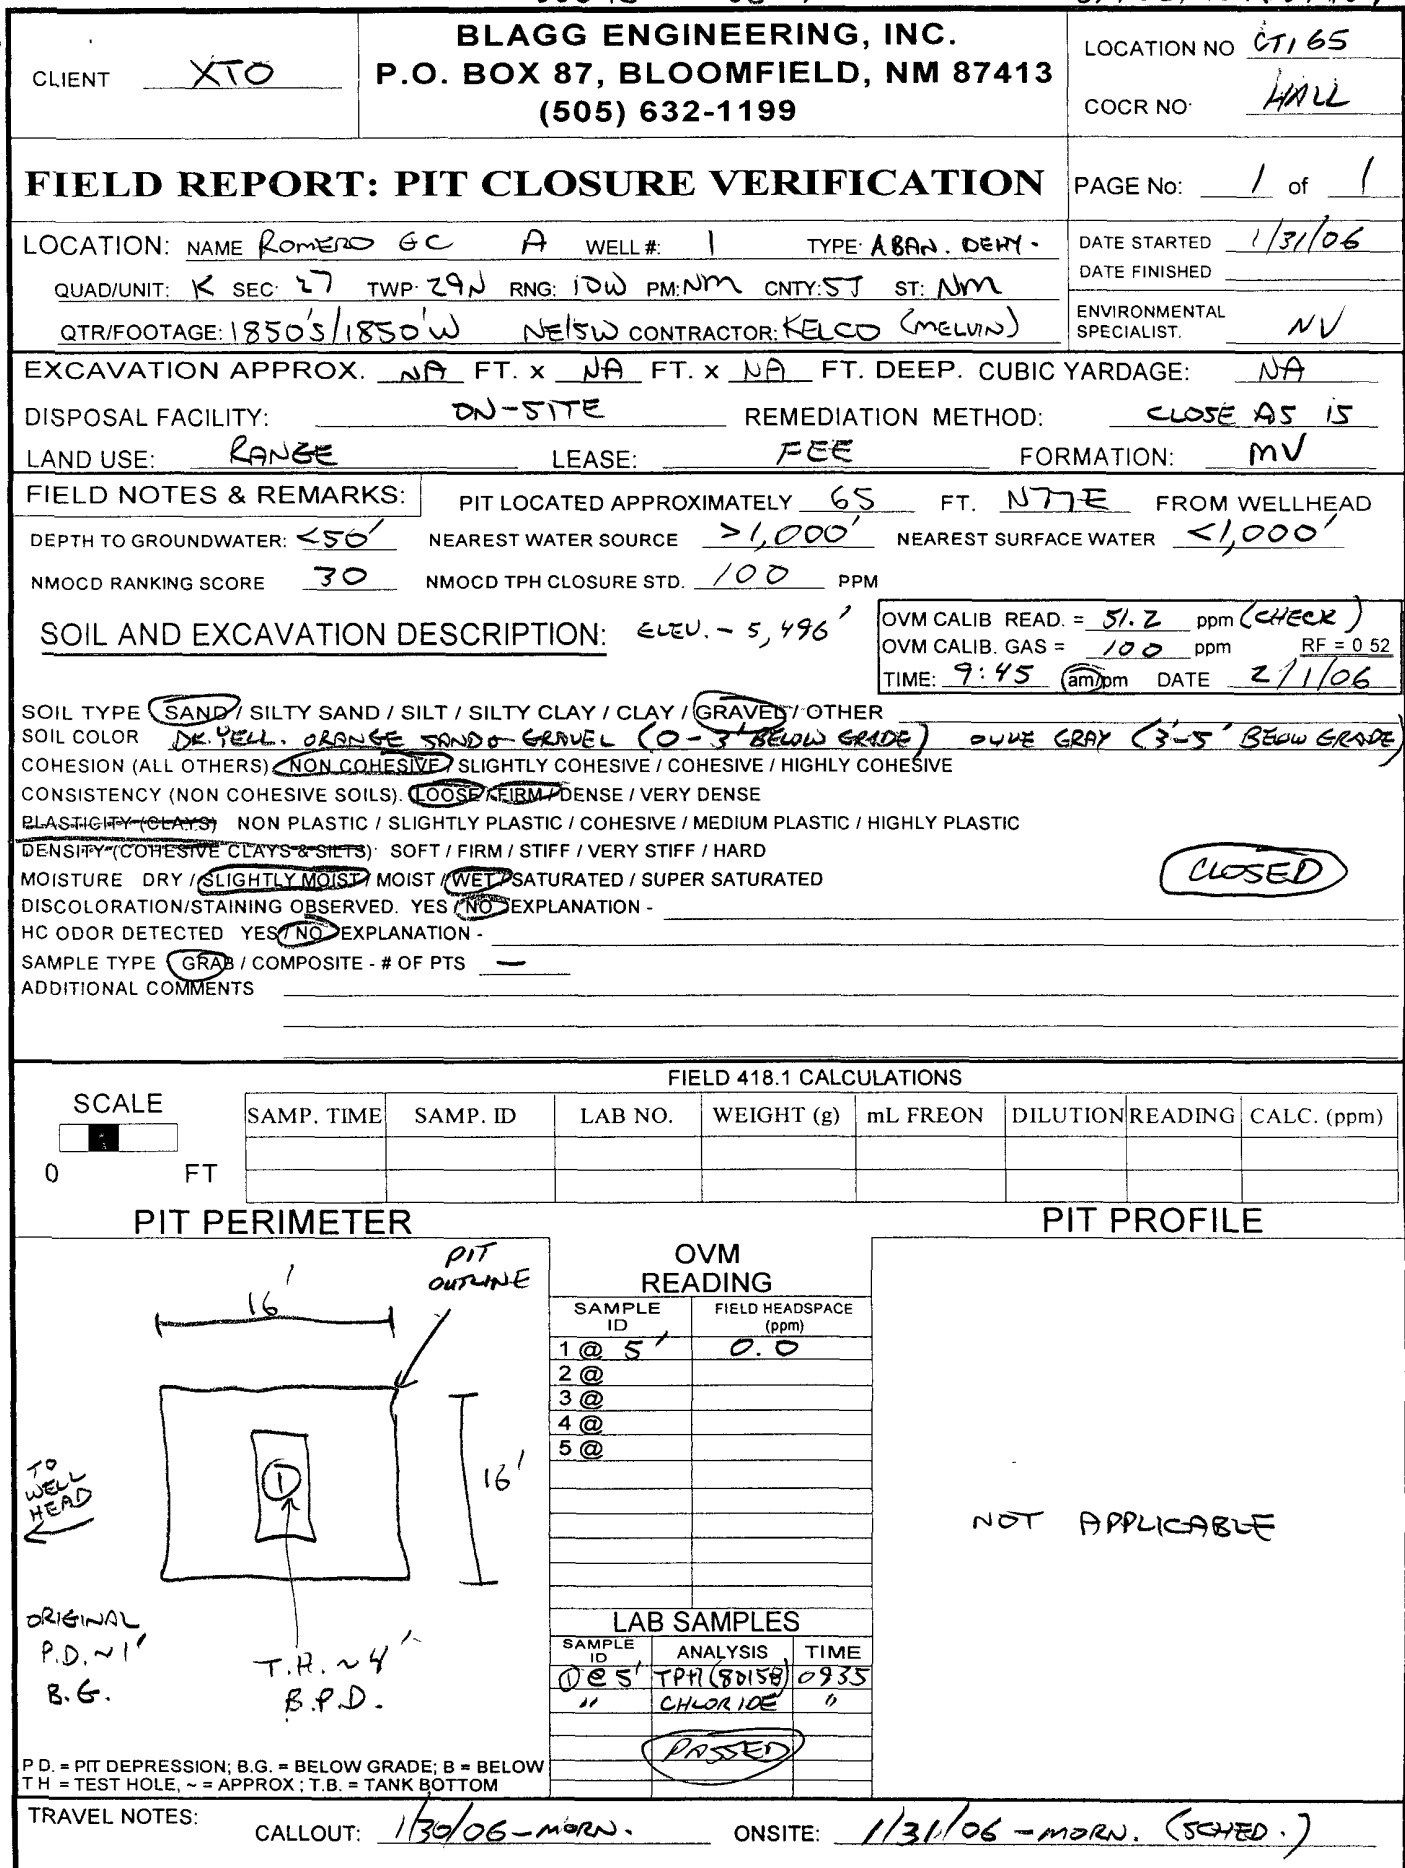 BLAGG ENGINEERING, INC.
P.O. BOX 87, BLOOMFIELD, NM 87413
(505) 632-1199
CLIENT XTO
LOCATION NO CT165
COCR NO HALL
FIELD REPORT: PIT CLOSURE VERIFICATION
PAGE No: 1 of 1
LOCATION: NAME ROMERO GC A WELL #: 1 TYPE: ABAN. DEHY.
DATE STARTED 1/31/06
DATE FINISHED
QUAD/UNIT: K SEC: 27 TWP: 29N RNG: 10W PM: NM CNTY: SJ ST: NM
QTR/FOOTAGE: 1850'S/1850'W NE/SW CONTRACTOR: KELCO (MELVIN)
ENVIRONMENTAL SPECIALIST. NV
EXCAVATION APPROX. NA FT. x NA FT. x NA FT. DEEP. CUBIC YARDAGE: NA
DISPOSAL FACILITY: ON-SITE REMEDIATION METHOD: CLOSE AS IS
LAND USE: RANGE LEASE: FEE FORMATION: MV
FIELD NOTES & REMARKS: PIT LOCATED APPROXIMATELY 65 FT. N77E FROM WELLHEAD
DEPTH TO GROUNDWATER: <50' NEAREST WATER SOURCE >1,000' NEAREST SURFACE WATER <1,000'
NMOCD RANKING SCORE 30 NMOCD TPH CLOSURE STD. 100 PPM
SOIL AND EXCAVATION DESCRIPTION: ELEV. - 5,496'
OVM CALIB READ. = 51.2 ppm (CHECK)
OVM CALIB. GAS = 100 ppm RF = 0 52
TIME: 9:45 am/pm DATE 2/1/06
SOIL TYPE SAND / SILTY SAND / SILT / SILTY CLAY / CLAY / GRAVEL / OTHER
SOIL COLOR DK. YELL. ORANGE SAND & GRAVEL (0-3' BELOW GRADE) OLIVE GRAY (3'-5' BELOW GRADE)
COHESION (ALL OTHERS) NON COHESIVE / SLIGHTLY COHESIVE / COHESIVE / HIGHLY COHESIVE
CONSISTENCY (NON COHESIVE SOILS). LOOSE / FIRM / DENSE / VERY DENSE
PLASTICITY (CLAYS) NON PLASTIC / SLIGHTLY PLASTIC / COHESIVE / MEDIUM PLASTIC / HIGHLY PLASTIC
DENSITY (COHESIVE CLAYS & SILTS) SOFT / FIRM / STIFF / VERY STIFF / HARD
MOISTURE DRY / SLIGHTLY MOIST / MOIST / WET / SATURATED / SUPER SATURATED
CLOSED
DISCOLORATION/STAINING OBSERVED. YES / NO EXPLANATION -
HC ODOR DETECTED YES / NO EXPLANATION -
SAMPLE TYPE GRAB / COMPOSITE - # OF PTS —
ADDITIONAL COMMENTS
FIELD 418.1 CALCULATIONS
SCALE
0 FT
SAMP. TIME SAMP. ID LAB NO. WEIGHT (g) mL FREON DILUTION READING CALC. (ppm)
PIT PERIMETER
PIT PROFILE
PIT OUTLINE
16'
16'
TO WELL HEAD
1
ORIGINAL P.D. ~ 1' B.G.
T.H. ~ 4' B.P.D.
OVM READING
SAMPLE ID FIELD HEADSPACE (ppm)
1 @ 5' 0.0
2 @
3 @
4 @
5 @
NOT APPLICABLE
LAB SAMPLES
SAMPLE ID ANALYSIS TIME
1 @ 5' TPH (8015B) 0935
" CHLORIDE "
PASSED
P D. = PIT DEPRESSION; B.G. = BELOW GRADE; B = BELOW
T H = TEST HOLE, ~ = APPROX ; T.B. = TANK BOTTOM
TRAVEL NOTES: CALLOUT: 1/30/06 - MORN. ONSITE: 1/31/06 - MORN. (SCHED.)